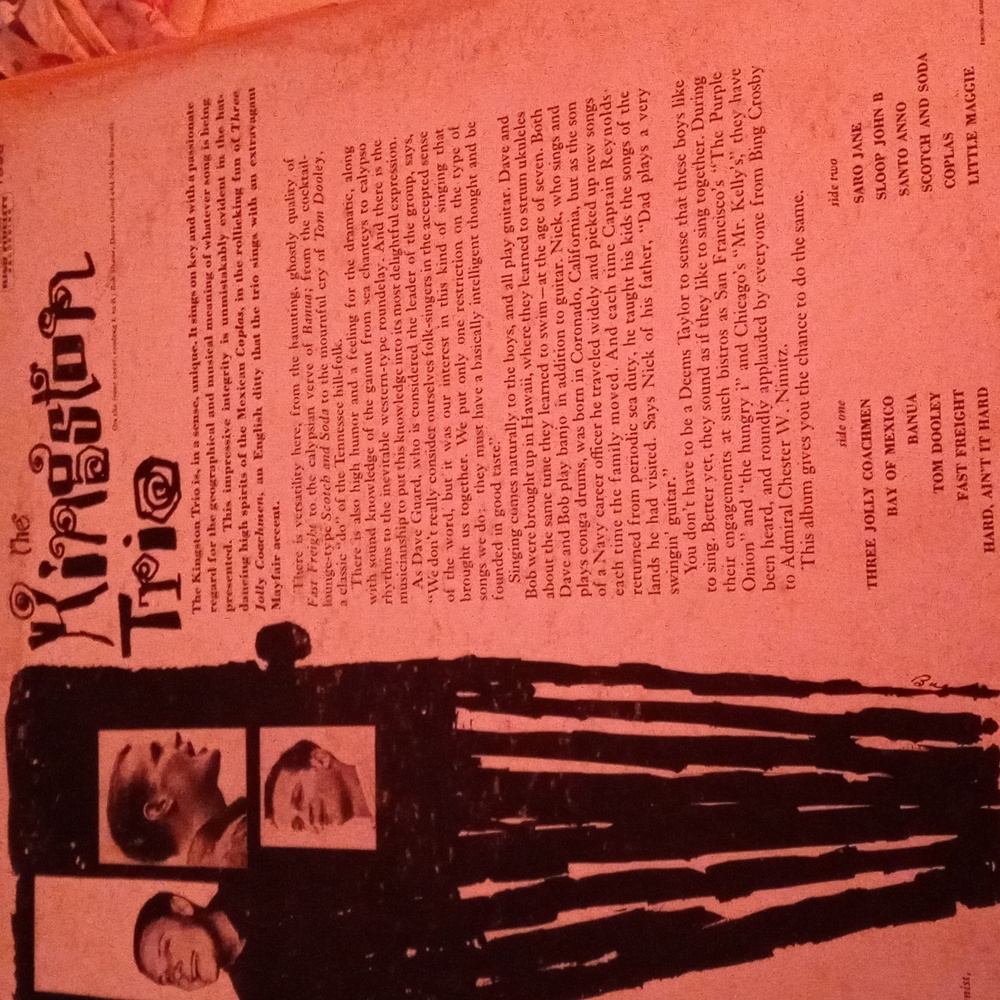 The
Kingston
Trio
The Kingston Trio is, in a sense, unique. It sings on key and with a passionate
regard for the geographical and musical meaning of whatever song is being
presented. This impressive integrity is unmistakably evident in the hat-
dancing high spirits of the Mexican Coplas, in the rollicking fun of Three
Jolly Coachmen, an English ditty that the trio sings with an extravagant
Mayfair accent.
There is versatility here, from the haunting, ghostly quality of
Fast Freight to the calypsian verve of Banua; from the cocktail-
lounge-type Scotch and Soda to the mournful cry of Tom Dooley,
a classic "do" of the Tennessee hill-folk.
There is also high humor and a feeling for the dramatic, along
with sound knowledge of the gamut from sea chanteys to calypso
rhythms to the inevitable western-type roundelay. And there is the
musicianship to put this knowledge into its most delightful expression.
As Dave Guard, who is considered the leader of the group, says,
"We don't really consider ourselves folk-singers in the accepted sense
of the word, but it was our interest in this kind of singing that
brought us together. We put only one restriction on the type of
songs we do: they must have a basically intelligent thought and be
founded in good taste."
Singing comes naturally to the boys, and all play guitar. Dave and
Bob were brought up in Hawaii, where they learned to strum ukuleles
about the same time they learned to swim—at the age of seven. Both
Dave and Bob play banjo in addition to guitar. Nick, who sings and
plays conga drums, was born in Coronado, California, but as the son
of a Navy career officer he traveled widely and picked up new songs
each time the family moved. And each time Captain Reynolds
returned from periodic sea duty, he taught his kids the songs of the
lands he had visited. Says Nick of his father, "Dad plays a very
swingin' guitar."
You don't have to be a Deems Taylor to sense that these boys like
to sing. Better yet, they sound as if they like to sing together. During
their engagements at such bistros as San Francisco's "The Purple
Onion" and "the hungry i" and Chicago's "Mr. Kelly's", they have
been heard, and roundly applauded by everyone from Bing Crosby
to Admiral Chester W. Nimitz.
This album gives you the chance to do the same.
side one
THREE JOLLY COACHMEN
BAY OF MEXICO
BANUA
TOM DOOLEY
FAST FREIGHT
HARD, AIN'T IT HARD
side two
SARO JANE
SLOOP JOHN B
SANTO ANNO
SCOTCH AND SODA
COPLAS
LITTLE MAGGIE